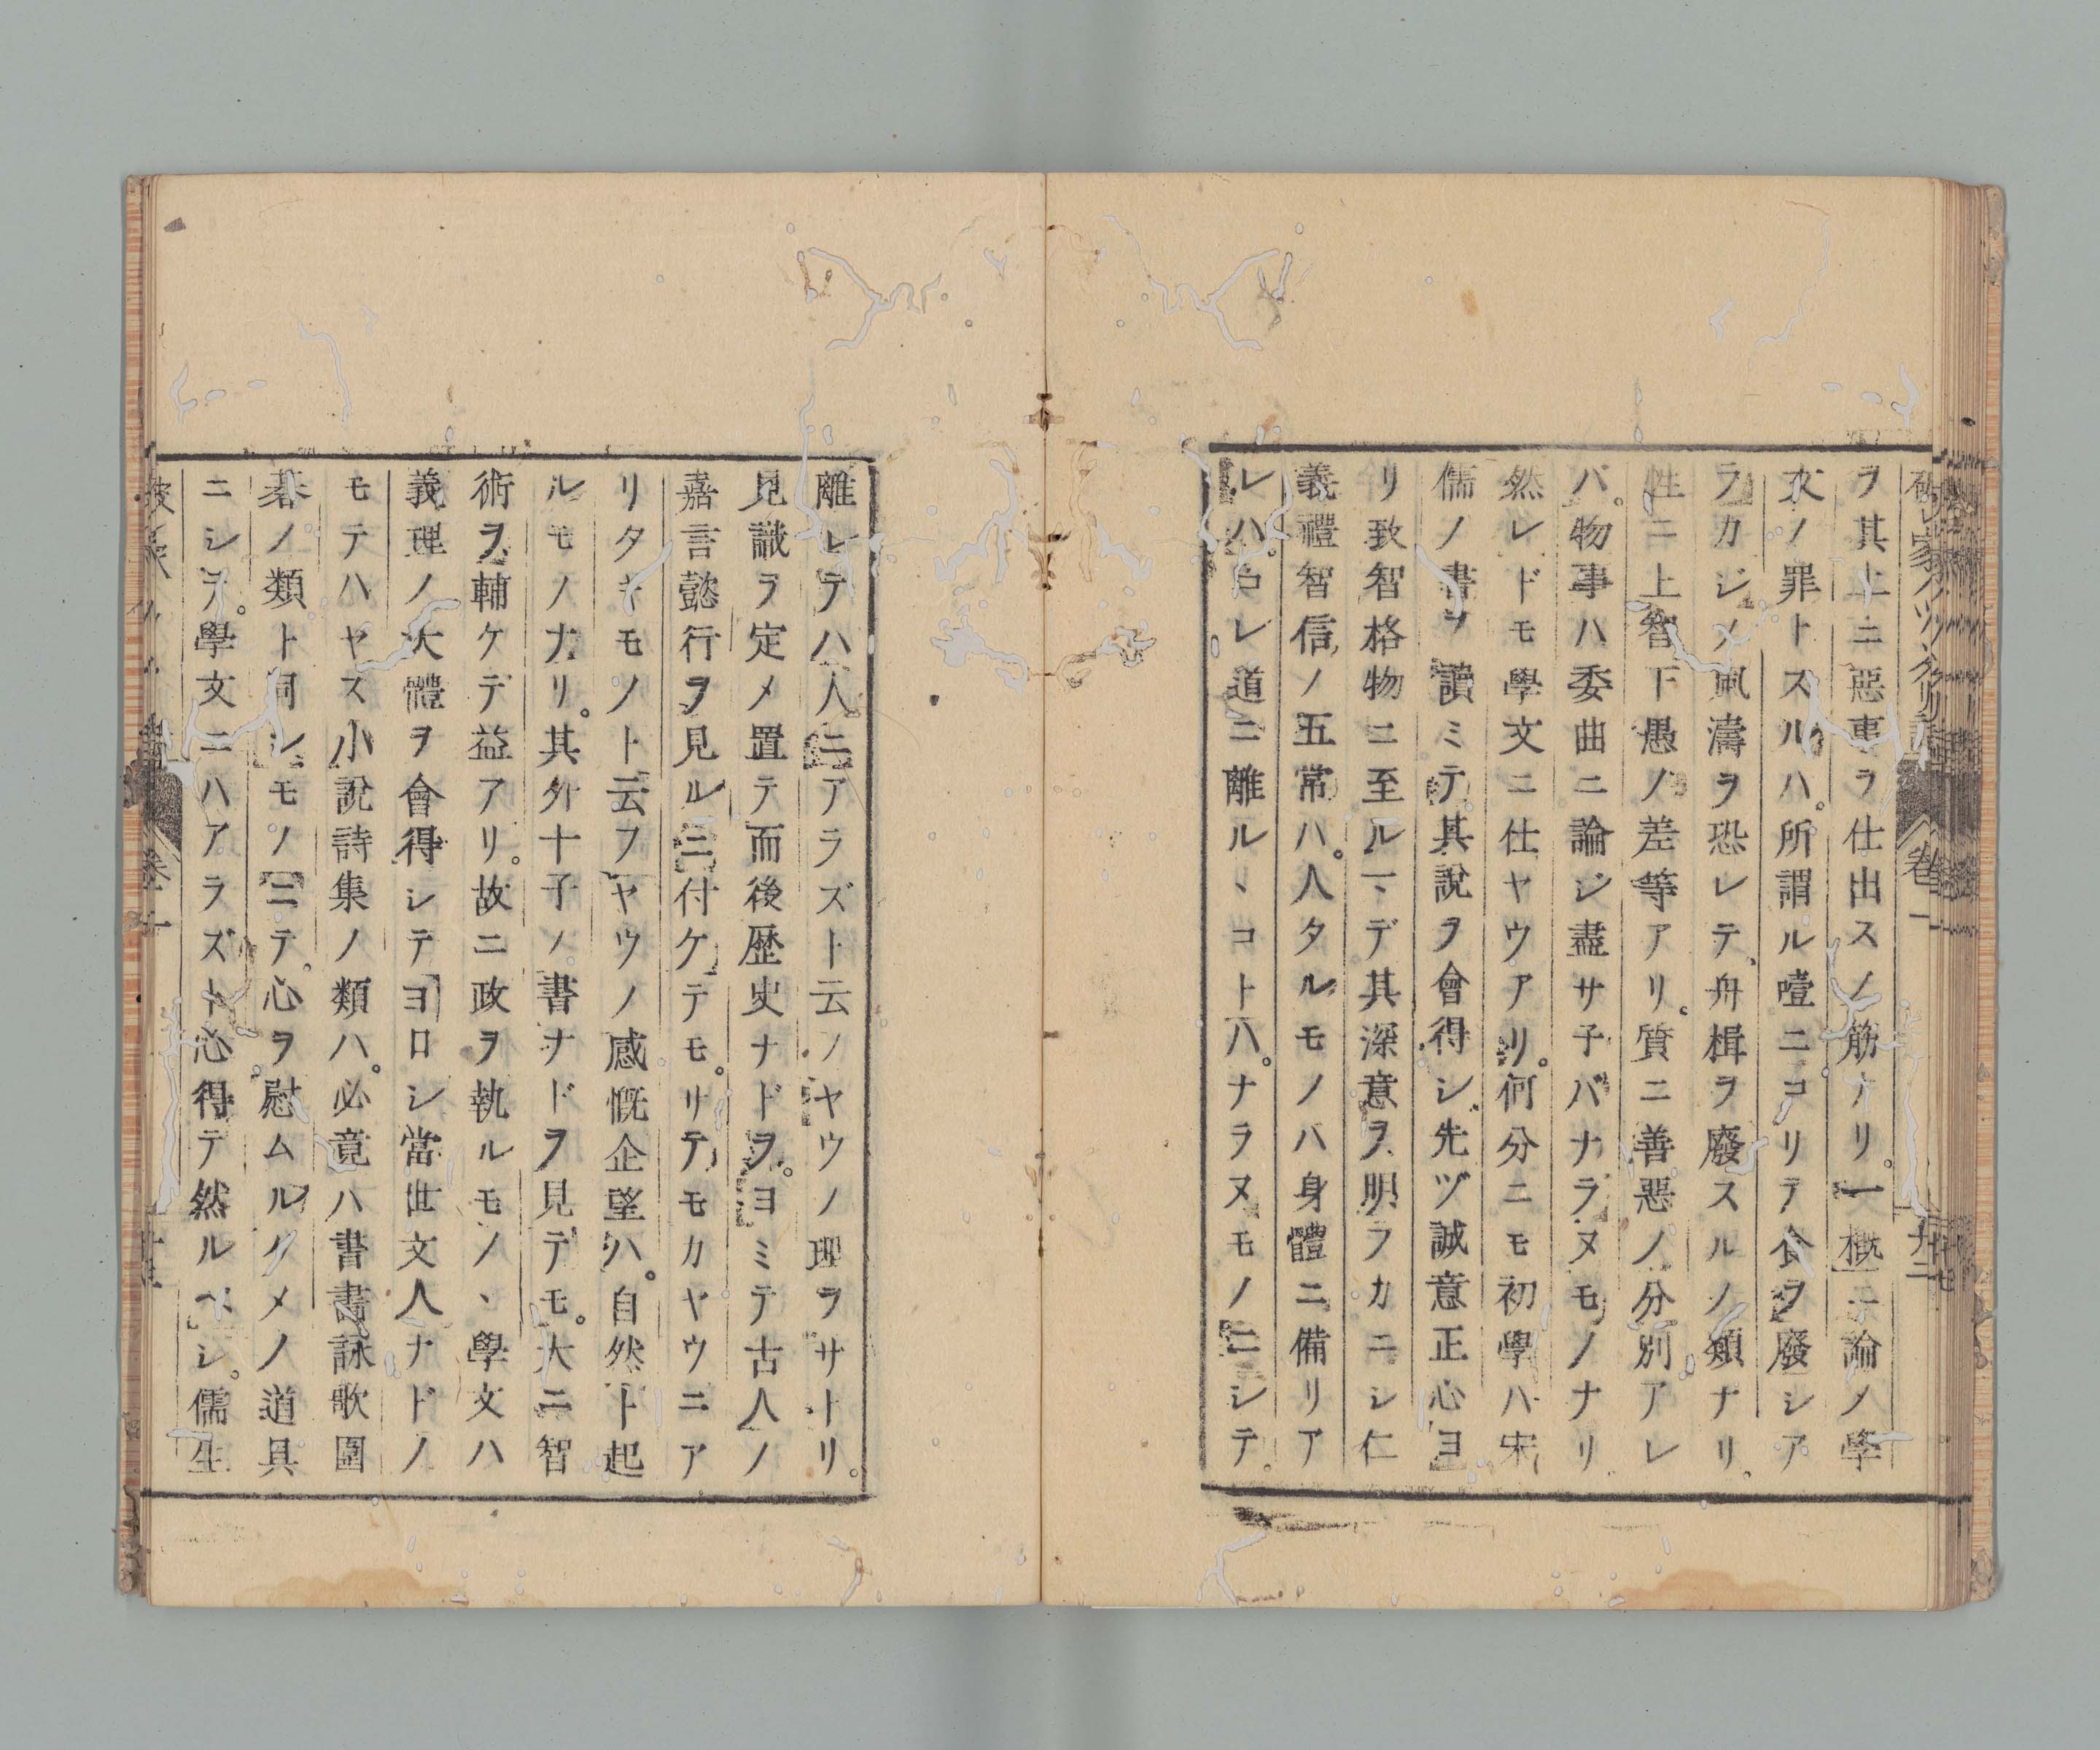 ヲ其上ニ惡事ヲ仕出スノ筋ナリ。一概ニ論ノ學
文ノ罪トスルハ。所謂ル噎ニコリテ食ヲ廢シア
ラカジメ風濤ヲ恐レテ、舟楫ヲ廢スルノ類ナリ、
性ニ上智下愚ノ差等アリ。質ニ善惡ノ分別アレ
バ。物事ハ委曲ニ論ジ盡サ子バナラヌモノナリ
然レドモ學文ニ仕ヤウアリ。何分ニモ初學ハ宋
儒ノ書ヲ讀ミテ其說ヲ會得シ、先ヅ誠意正心ヨ
リ致智格物ニ至ルマデ其深意ヲ明ラカニシ仁
義禮智信ノ五常ハ。人タルモノハ身體ニ備リア
レハ。白レ道ニ離ルヽコトハ。ナラヌモノニシテ。
離レテハ人ニアラズト云ノヤウノ理ヲサトリ。
見識ヲ定メ置テ而後歴史ナドヲ。ヨミテ古人ノ
嘉言懿行ヲ見ルニ付ケテモ。リテモカヤウニア
リタキモノト云フヤウノ感慨企望ハ。自然ト起
ルモノナリ。其外十子ノ書ナドヲ見デモ。大ニ智
術ヲ輔ケデ益アリ。故ニ政ヲ執ルモノヽ學文ハ
義理ノ大體ヲ會得シテヨロシ當世文人ナドノ
モテハヤス小說詩集ノ類ハ。必竟ハ書畵詠歌圍
碁ノ類ト同シモノニテ、心ヲ慰ムルタメノ道具
ニシテ。學文ニハアラズト心得テ然ルベシ。儒生